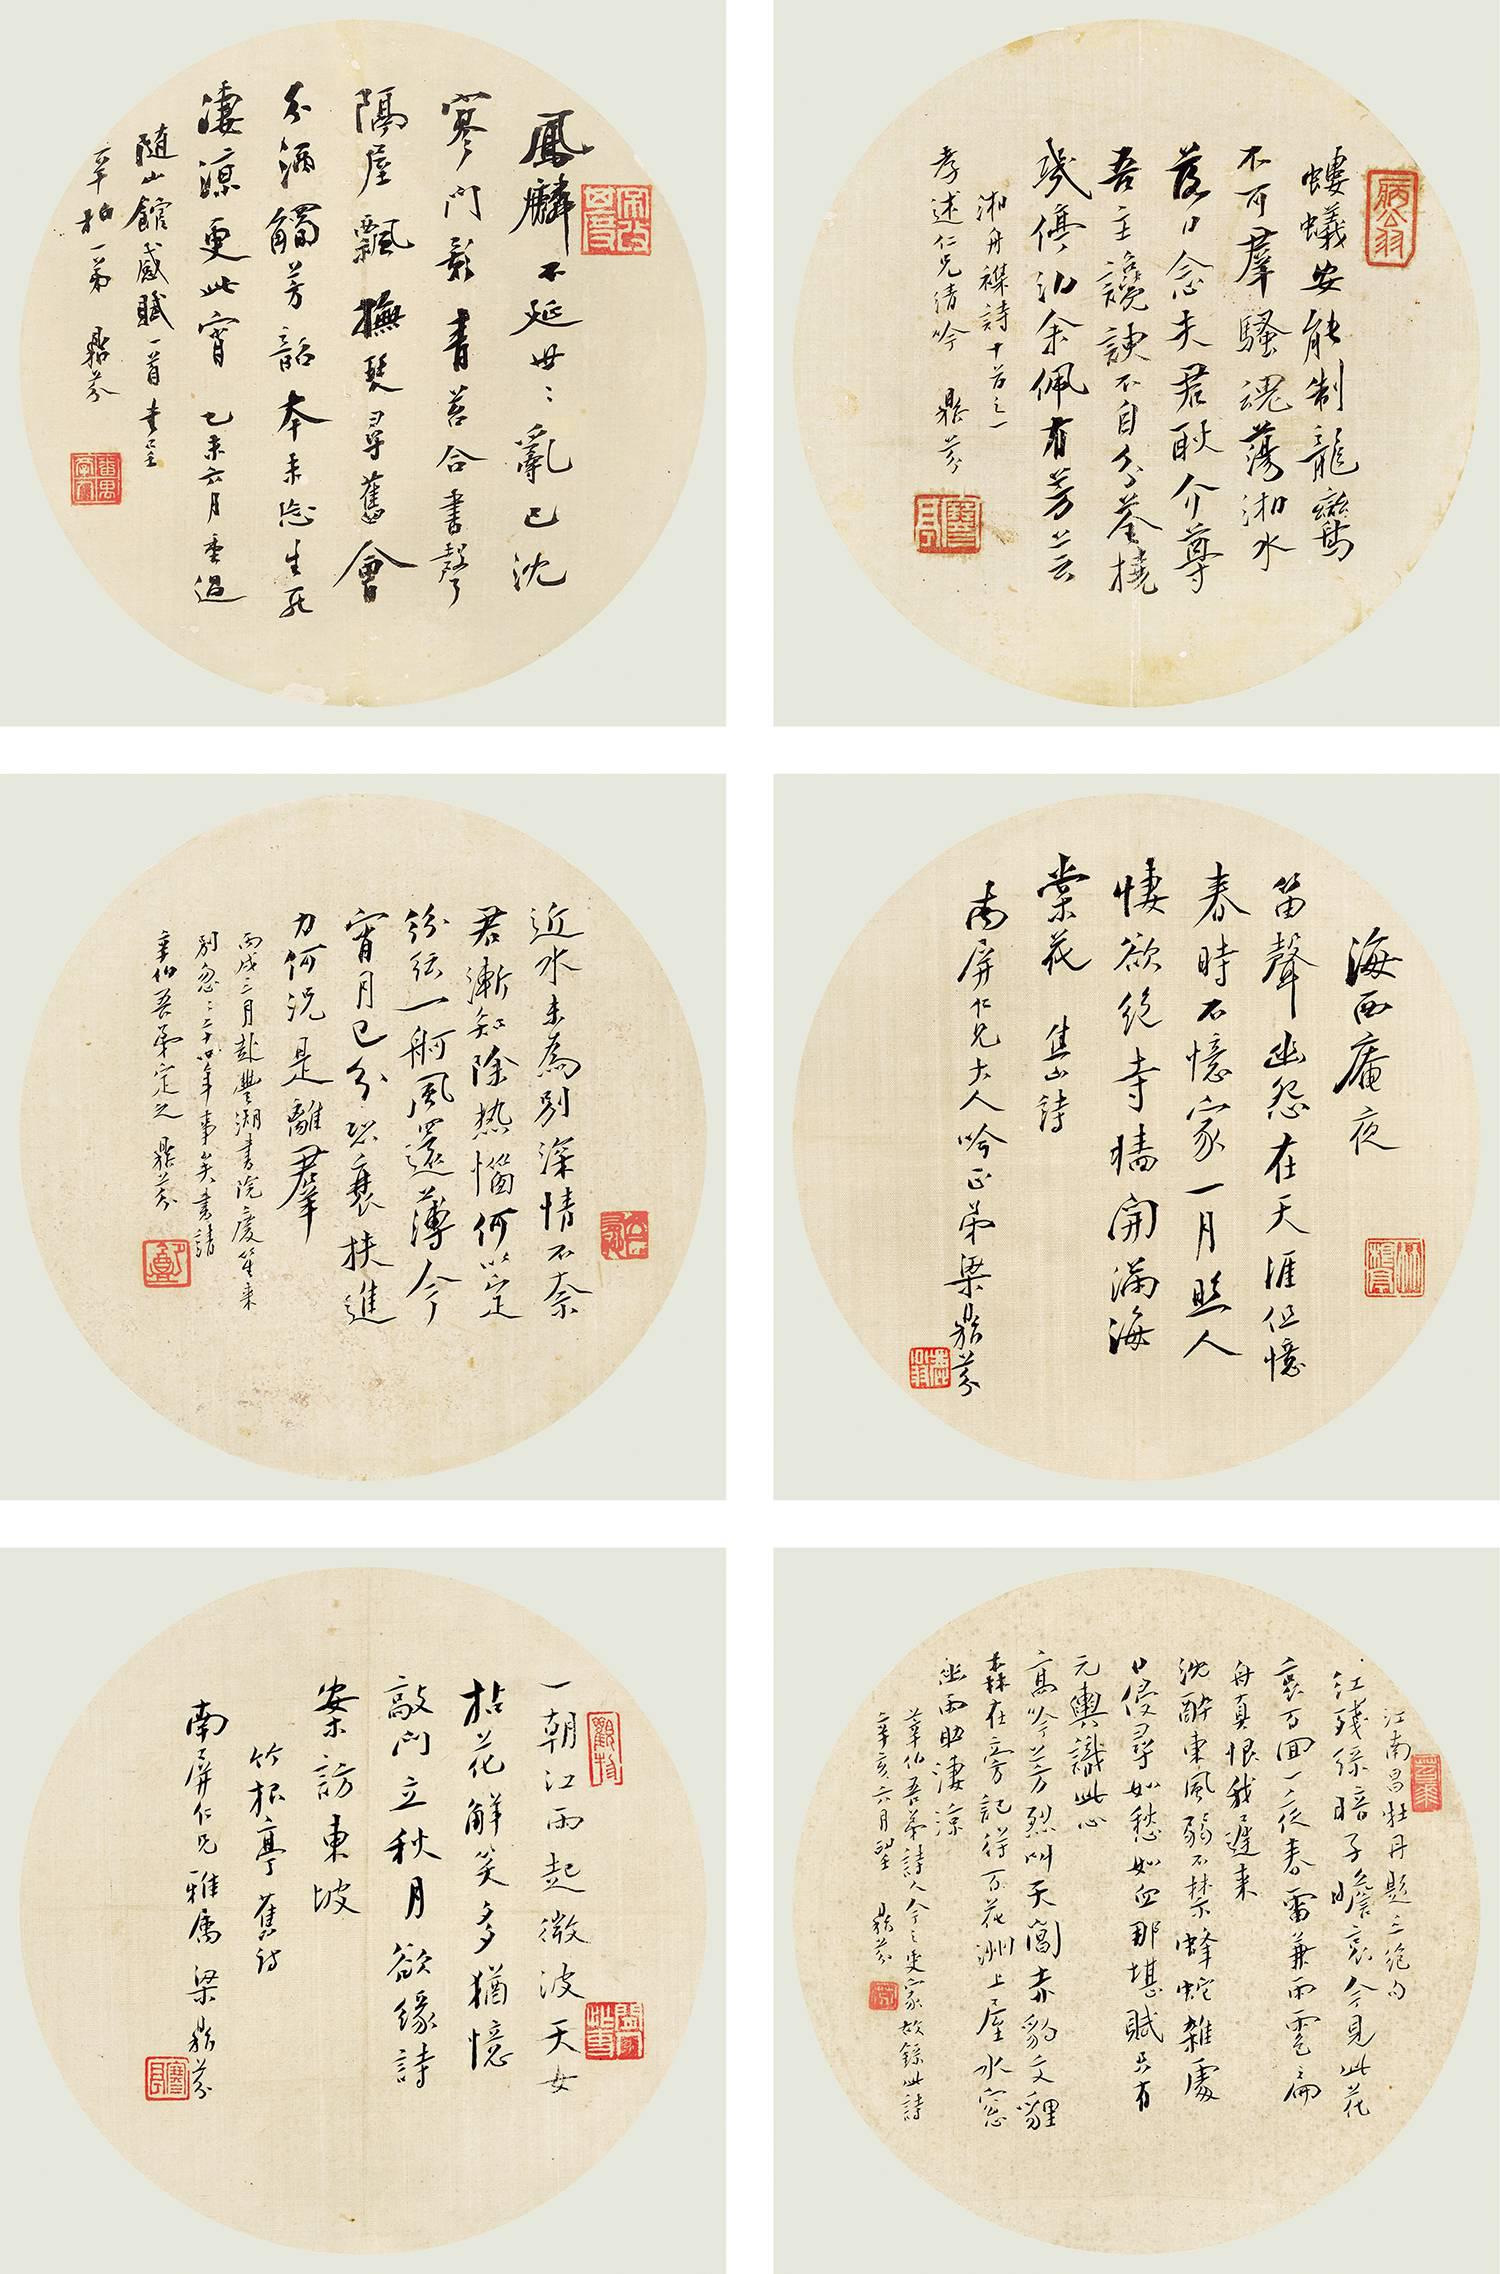 鳳麟不延世〻亂已沈
寥門影青苔合書聲
隔屋飄撫琴尋舊會
分酒觸芳韶本未忘生死
淒涼更此宵 乙未六月重過
隨山館感賦一首書呈
辛柏一弟 鼎芬
螻蟻安能制龍鸞
不可羣騷魂蕩湘水
落日念夫君耿介尊
吾主讒諛不自分荃橈
或停汎余佩有芳芸
湘舟襍詩十首之一
孝述仁兄清吟 鼎芬
病翁
近水未為別深情不奈
君漸知除熱惱何以定
紛紜一舸風還薄今
宵月已分恐衰扶進
力何況是離羣
丙戌三月赴豐湖書院慶笙來
別忽〻二十四年事矣書請
辛伯吾弟定之 鼎芬
海西庵夜
笛聲幽怨在天涯但憶
春時不憶家一月照人
悽欲絕寺牆開滿海
棠花 焦山詩
南屏仁兄大人吟正弟梁鼎芬
一朝江雨起微波天女
拈花解笑多猶憶
敲門立秋月欲緣詩
案訪東坡
竹根亭舊詩
南屏仁兄雅屬 梁鼎芬
江南昌牡丹題三絕句
江殘綠暗子瞻哀今見此花
哀百回一夜春雷兼雨雹扁
舟真恨我遲來
沈醉東風弱不禁蜂蛇雜處
日侵尋如愁如血那堪賦只有
元輿識此心
高吟芳烈叫天閽赤豹文貍
森在旁記得百花洲上屋水窓
幽雨助淒涼
莘伯吾弟詩人今之史家故錄此詩
辛亥六月望 鼎芬